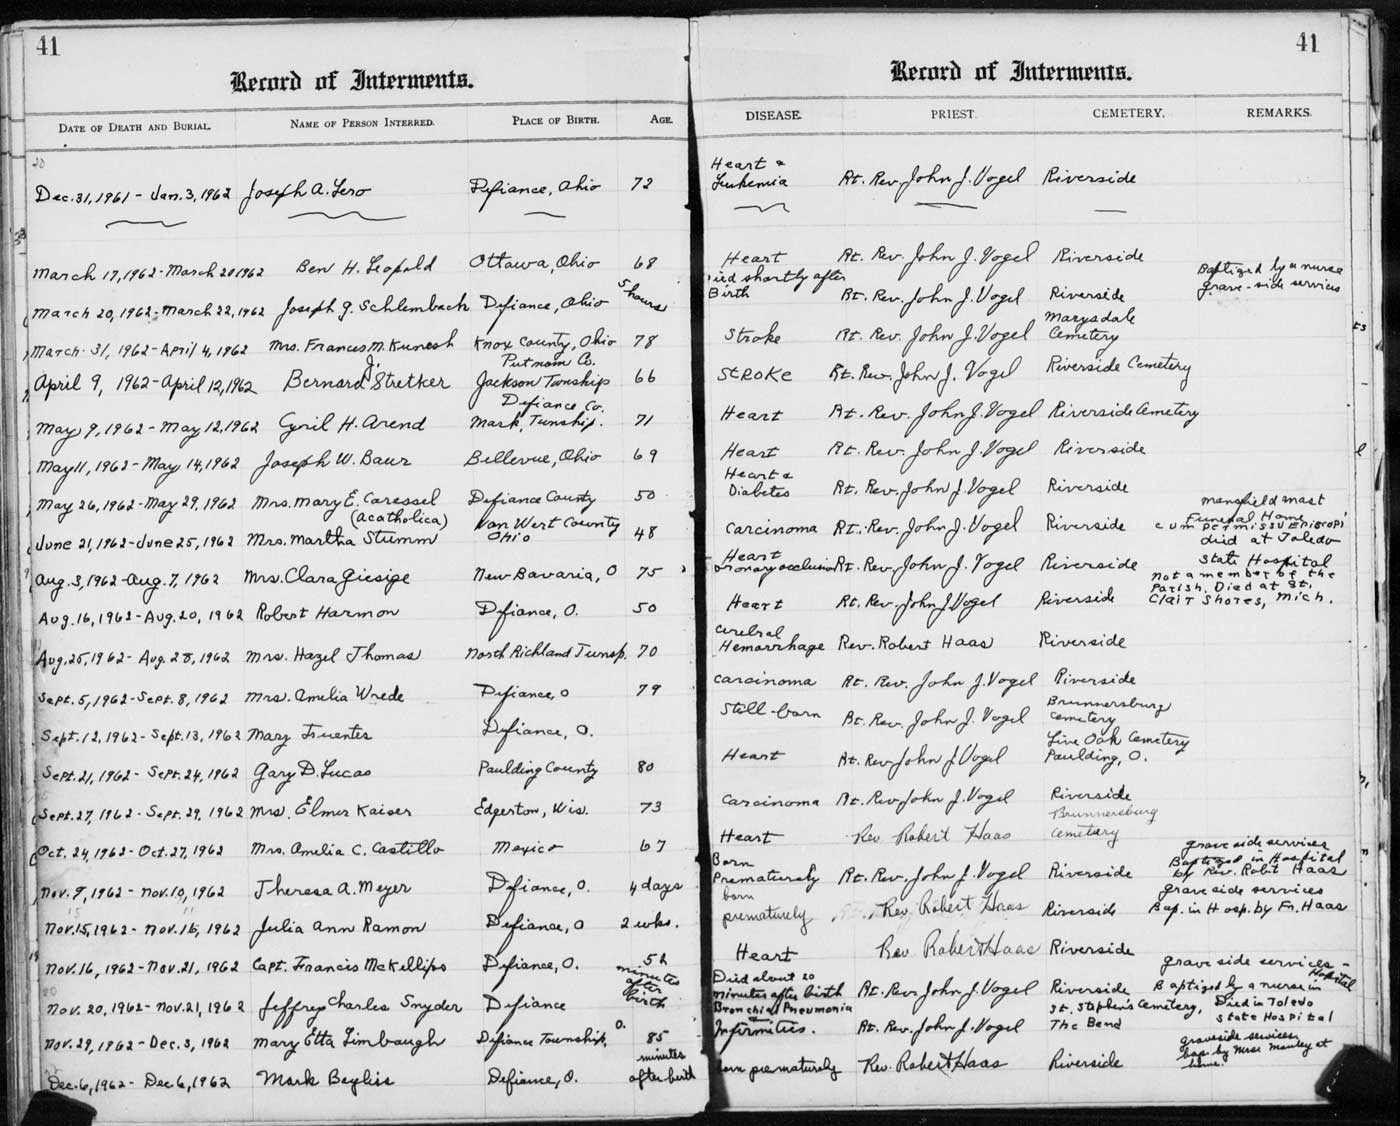 41
Record of Interments.
DATE OF DEATH AND BURIAL.
NAME OF PERSON INTERRED.
PLACE OF BIRTH.
AGE.
20
Dec.31,1961 - Jan.3,1962 Joseph A. Lero Defiance, Ohio 72
March 17,1962-March 20 1962 Ben H. Leopold Ottawa, Ohio 68
5 hours
March 20,1962-March 22,1962 Joseph G. Schlembach Defiance, Ohio
March 31, 1962-April 4,1962 Mrs. Frances M. Kunesh Knox County, Ohio 78
J. Putnam Co.
April 9, 1962-April 12,1962 Bernard Stretker Jackson Twnship 66
Defiance Co.
May 9,1962 - May 12,1962 Cyril H. Arend Mark, Twnship. 71
May 11, 1962-May 14,1962 Joseph W. Baur Bellevue, Ohio 69
May 26,1962-May 29,1962 Mrs. Mary E. Caressel Defiance County 50
(acatholica) Van Wert County
June 21,1962-June 25,1962 Mrs. Martha Stumm Ohio 48
Aug.3,1962-Aug.7,1962 Mrs. Clara Giesige New Bavaria, O 75
Aug.16,1962-Aug.20, 1962 Robert Harmon Defiance, O. 50
Aug.25,1962- Aug.28,1962 Mrs. Hazel Thomas North Richland Twnsp. 70
Sept.5,1962-Sept.8,1962 Mrs. Amelia Wrede Defiance, O 79
Sept.12,1962- Sept.13,1962 Mary Fuentes Defiance, O.
Sept.21,1962- Sept.24,1962 Gary D. Lucas Paulding County 80
Sept.27,1962-Sept.29,1962 Mrs. Elmer Kaiser Edgerton, Wis. 73
Oct.24,1962-Oct.27,1962 Mrs. Amelia C. Castillo Mexico 67
Nov.9,1962 - Nov.10,1962 Theresa A. Meyer Defiance, O. 4 days
15 11
Nov.15,1962- Nov.16, 1962 Julia Ann Ramon Defiance, O 2 wks.
Nov.16, 1962-Nov.21, 1962 Capt. Francis McKellips Defiance, O. 52
minutes after birth
20
Nov.20,1962-Nov.21,1962 Jeffrey Charles Snyder Defiance
Nov.29,1962-Dec.3,1962 Mary Etta Limbaugh Defiance Township, O. 85
minutes
Dec.6,1962- Dec 6,1962 Mark Baylis Defiance, O. after birth
41
Record of Interments.
DISEASE.
PRIEST.
CEMETERY.
REMARKS.
Heart &
Leukemia Rt. Rev. John J. Vogel Riverside
Heart Rt. Rev. John J. Vogel Riverside
Died shortly after Baptized by a nurse
Birth Rt. Rev. John J. Vogel Riverside grave-side services
Marysdale
Stroke Rt. Rev. John J. Vogel Cemetery
Stroke Rt. Rev. John J. Vogel Riverside Cemetery
Heart Rt. Rev. John J. Vogel Riverside Cemetery
Heart Rt. Rev. John J. Vogel Riverside
Heart &
Diabetes Rt. Rev. John J. Vogel Riverside
Mansfield mast
Funeral Home
Carcinoma Rt. Rev. John J. Vogel Riverside cum permissu Episcopi
died at Toledo
Heart State Hospital
Coronary occlusion Rt. Rev. John J. Vogel Riverside
Not a member of the
Parish. Died at St.
Heart Rt. Rev. John J. Vogel Riverside Clair Shores, Mich.
Cerebral
Hemorrhage Rev. Robert Haas Riverside
Carcinoma Rt. Rev. John J. Vogel Riverside
Brunnersburg
Still-born Rt. Rev. John J. Vogel Cemetery
Live Oak Cemetery
Heart Rt. Rev. John J. Vogel Paulding, O.
Carcinoma Rt. Rev John J. Vogel Riverside
Brunnersburg
Heart Rev. Robert Haas Cemetery
Born grave side services
Prematurely Rt. Rev. John J. Vogel Riverside Baptized in Hospital
by Rev. Robt Haas
born grave side services
prematurely Rev. Robert Haas Riverside Bap. in Hosp. by Fr. Haas
Heart Rev. Robert Haas Riverside
Died about 20 grave side services-
minutes after birth Rt. Rev. John J. Vogel Riverside Baptized by a nurse in Hospital
Bronchial Pneumonia St. Stephen's Cemetery, Died in Toledo
& Infirmities. Rt. Rev. John J. Vogel The Bend State Hospital
graveside services,
Born prematurely Rev. Robert Haas Riverside bap. by Mrs. Manley at
home.